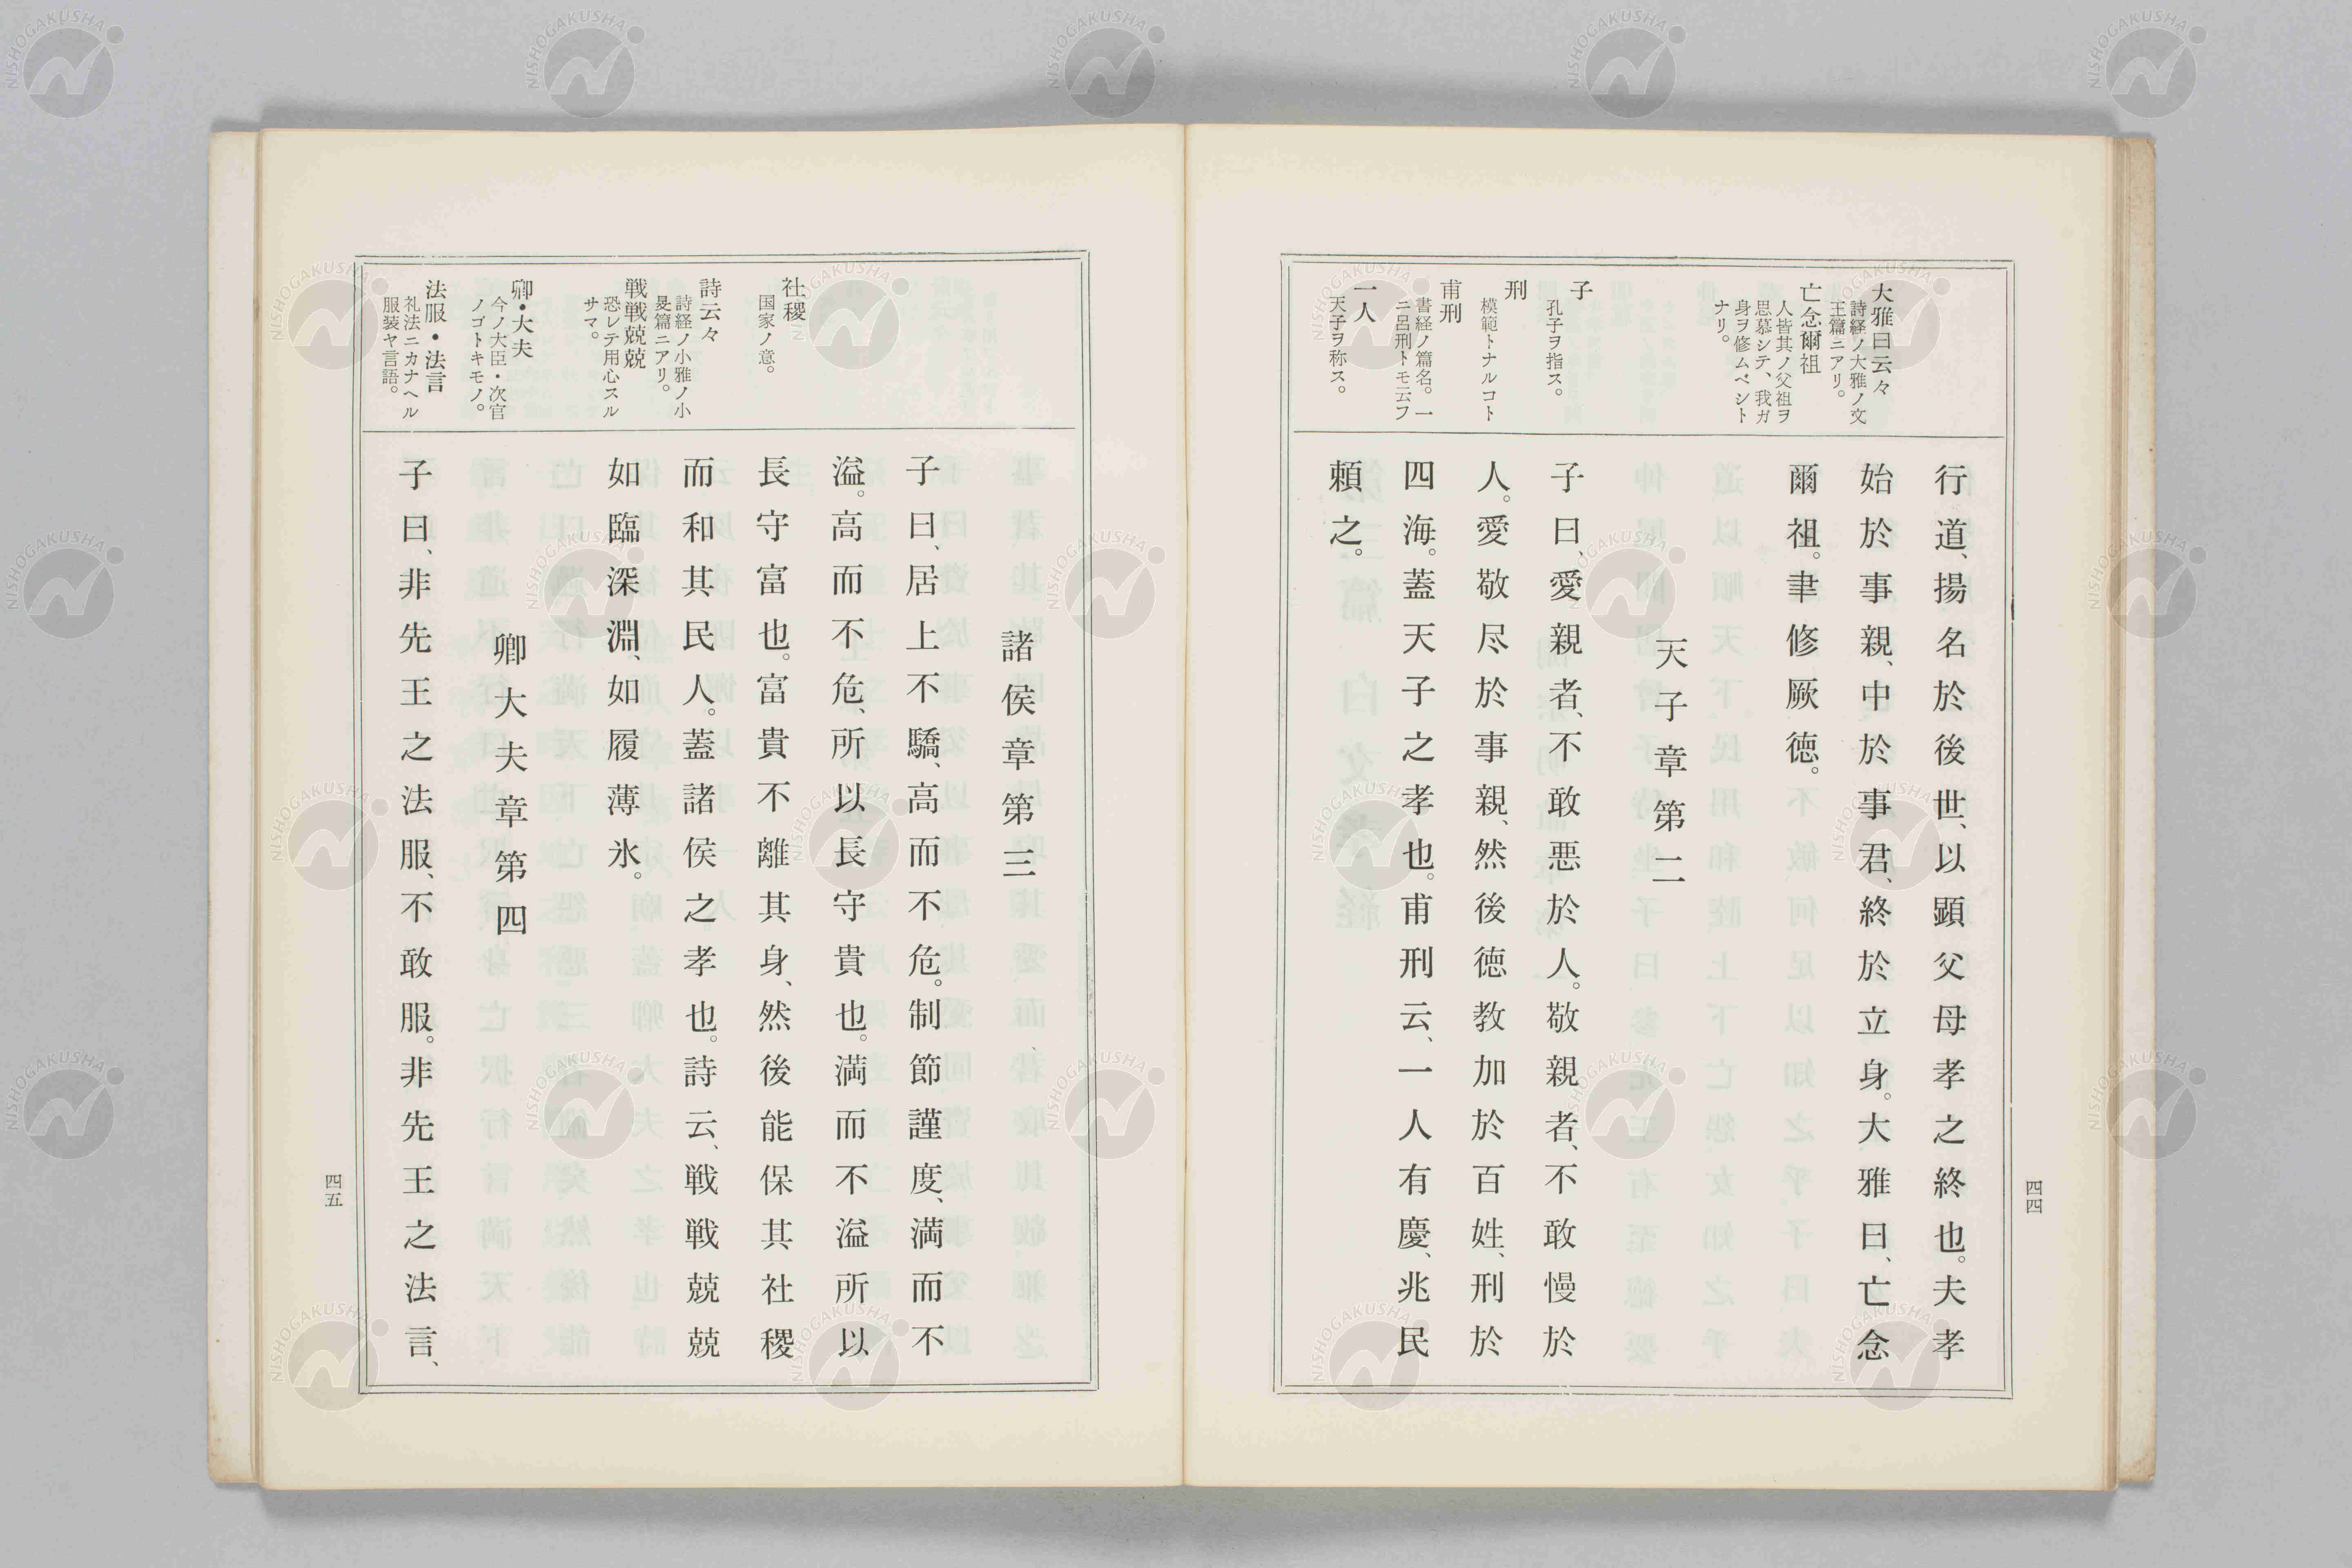 大雅曰云々
詩経ノ大雅ノ文
王篇ニアリ。
亡念爾祖
人皆其ノ父祖ヲ
思慕シテ、我ガ
身ヲ修ムベシト
ナリ。
子
孔子ヲ指ス。
刑
模範トナルコト
甫刑
書経ノ篇名。一
ニ呂刑トモ云フ
一人
天子ヲ称ス。
行道、揚名於後世、以顕父母孝之終也。夫孝
始於事親、中於事君、終於立身。大雅曰、亡念
爾祖。聿修厥徳。
天子章第二
子曰、愛親者、不敢悪於人。敬親者、不敢慢於
人。愛敬尽於事親、然後徳教加於百姓、刑於
四海。蓋天子之孝也。甫刑云、一人有慶、兆民
頼之。
四四
社稷
国家ノ意。
詩云々
詩経ノ小雅ノ小
旻篇ニアリ。
戦戦兢兢
恐レテ用心スル
サマ。
卿・大夫
今ノ大臣・次官
ノゴトキモノ。
法服・法言
礼法ニカナヘル
服装ヤ言語。
諸侯章第三
子曰、居上不驕、高而不危。制節謹度、満而不
溢。高而不危、所以長守貴也。満而不溢所以
長守富也。富貴不離其身、然後能保其社稷
而和其民人。蓋諸侯之孝也。詩云、戦戦兢兢
如臨深淵、如履薄氷。
卿大夫章第四
子曰、非先王之法服、不敢服。非先王之法言、
四五
NISHOGAKUSHA